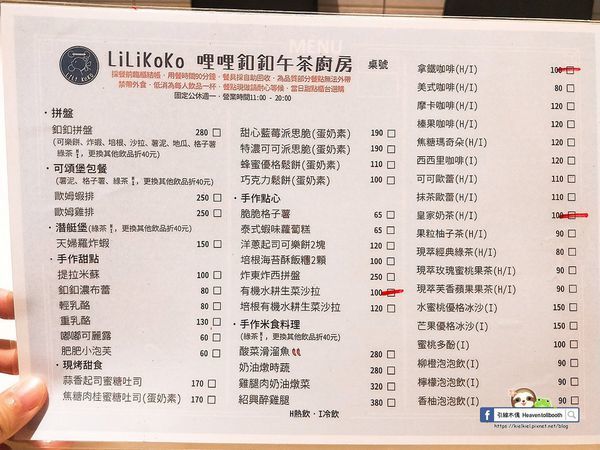 LiLi KoKo
LiLiKoKo 哩哩釦釦午茶廚房
MENU
桌號
採餐前臨櫃結帳,用餐時間90分鐘,餐具採自助回收,為品質部分餐點無法外帶
禁帶外食,低消為每人飲品一杯,餐點現做請耐心等候,當日甜點櫃台選購
固定公休週一,營業時間11:00 - 20:00
·拼盤
釦釦拼盤 280 □
(可樂餅、炸蝦、培根、沙拉、薯泥、地瓜、格子薯
綠茶,更換其他飲品折40元)
·可頌堡包餐
(薯泥、格子薯、綠茶,更換其他飲品折40元)
歐姆蝦排 250 □
歐姆雞排 250 □
·潛艇堡(綠茶,更換其他飲品折40元)
天婦羅炸蝦 150 □
·手作甜點
提拉米蘇 100 □
釦釦濃布蕾 80 □
輕乳酪 80 □
重乳酪 130 □
嘟嘟可麗露 60 □
肥肥小泡芙 60 □
·現烤甜食
蒜香起司蜜糖吐司 170 □
焦糖肉桂蜜糖吐司(蛋奶素) 170 □
甜心藍莓派思脆(蛋奶素) 190 □
特濃可可派思脆(蛋奶素) 190 □
蜂蜜優格鬆餅(蛋奶素) 110 □
巧克力鬆餅(蛋奶素) 100 □
·手作點心
脆脆格子薯 65 □
泰式蝦味蘿蔔糕 65 □
洋蔥起司可樂餅2塊 120 □
培根海苔酥飯糰2顆 100 □
炸東炸西拼盤 250 □
有機水耕生菜沙拉 100 □
培根有機水耕生菜沙拉 120 □
·手作米食料理
(綠茶,更換其他飲品折40元)
酸菜滑溜魚 280 □
奶油燉時蔬 280 □
雞腿肉奶油燉菜 320 □
紹興醉雞腿 380 □
H熱飲,I冷飲
拿鐵咖啡(H/I) 100 □
美式咖啡(H/I) 80 □
摩卡咖啡(H/I) 120 □
榛果咖啡(H/I) 120 □
焦糖瑪奇朵(H/I) 120 □
西西里咖啡(I) 120 □
可可歐蕾(H/I) 110 □
抹茶歐蕾(H/I) 110 □
皇家奶茶(H/I) 100 □
果粒柚子茶(H/I) 90 □
現萃經典綠茶(H/I) 80 □
現萃玫瑰蜜桃果茶(H/I) 100 □
現萃芙香蘋果果茶(H/I) 100 □
水蜜桃優格冰沙(I) 150 □
芒果優格冰沙(I) 150 □
蜜桃多酚(I) 100 □
柳橙泡泡飲(I) 90 □
檸檬泡泡飲(I) 90 □
香柚泡泡飲(I) 90 □
引線不偶 Heaventolibooth
https://kielkiel.pixnet.net/blog